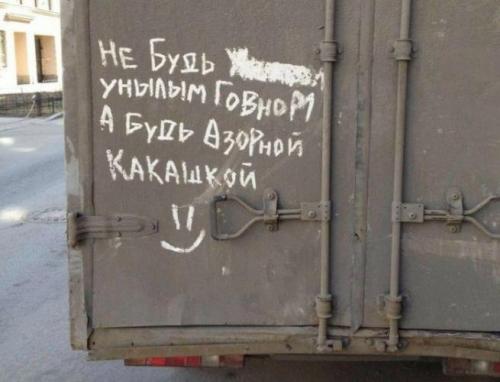 НЕ БУДЬ
УНЫЛЫМ ГОВНОМ
А БУДЬ АЗОРНОЙ
КАКАШКОЙ